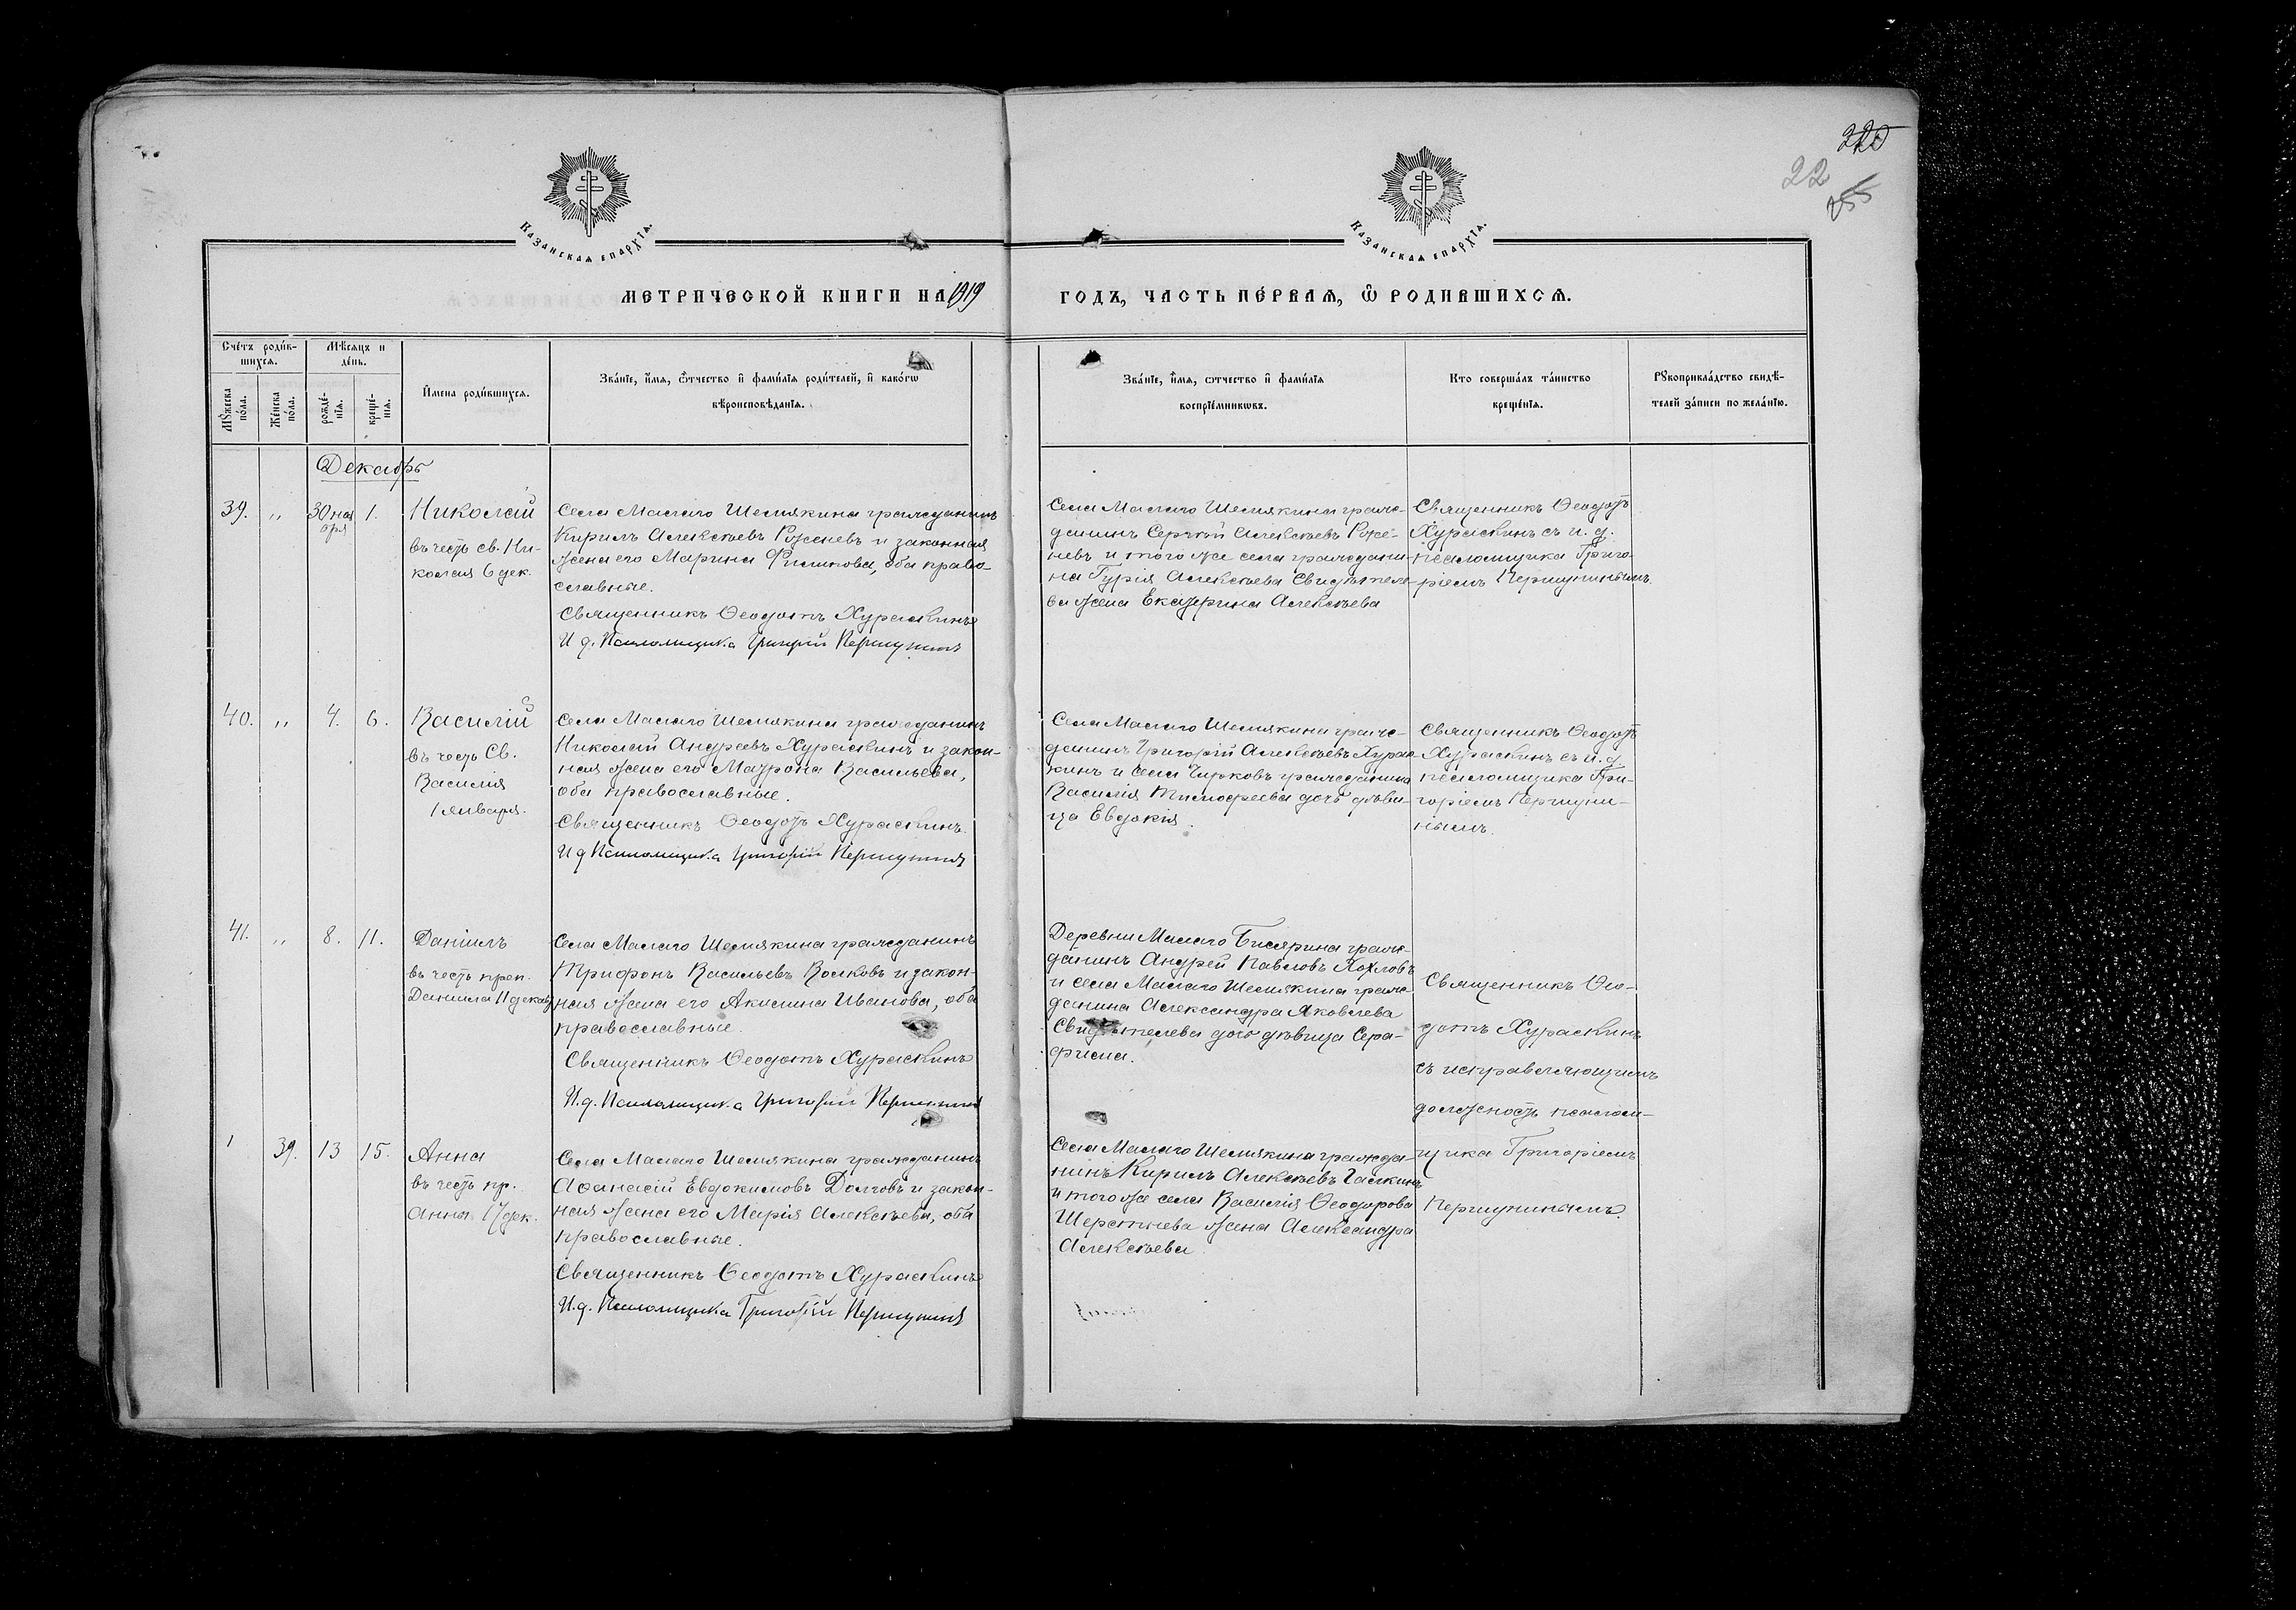 220
22
Казанская епархїѧ.
Казанская епархїѧ.
МЕТРИЧЕСКОЙ КНИГИ НА 1919
ГОДЪ, ЧАСТЬ ПЕ́РВАѦ, Ѡ РОДИВШИХСѦ.
Сче́тъ роди́в-
шихсѧ.
Мѣ́сѧцъ и
де́нь.
Мꙋ́жеска
по́ла.
Же́нска
по́ла.
рожде́-
нїѧ.
креще́-
нїѧ.
И҆мена роди́вшихсѧ.
Зва́нїе, и҆́мѧ, ѻ҆́тчество и҆ фами́лїѧ роди́телей, и҆ како́гѡ
вѣроисповѣ́данїѧ.
Зва́нїе, и҆́мѧ, ѻ҆́тчество и҆ фами́лїѧ
воспрїе́мникѡвъ.
Кто соверша́лъ та́инство
креще́нїѧ.
Рꙋкоприкла́дство свидѣ́-
телей за́писи по жела́нїю.
Декабрь
39. „ 30 ноя 1.
бря
Николай
въ честь св. Ни-
колая 6 дек.
Села Малаго Шемякина гражданинъ
Кирилъ Алексѣевъ Роженевъ и законная
жена его Марина Филипова, оба право-
славные.
Священникъ Ѳеодотъ Хураскинъ
И д. Псаломщика Григорій Першунинъ
Села Малаго Шемякина граж-
данинъ Сергѣй Алексѣевъ Роже-
невъ и того же села граждани-
на Гурія Алексѣева Свидѣтеле-
ва жена Екатерина Алексѣева
Священникъ Ѳеодотъ
Хураскинъ съ и. д.
псаломщика Григо-
ріемъ Першунинымъ.
40. „ 4. 6.
Василій
въ честь Св.
Василія
1 января.
Села Малаго Шемякина гражданинъ
Николай Андреевъ Хураскинъ и закон-
ная жена его Матрона Васильева,
оба православные.
Священникъ Ѳеодотъ Хураскинъ.
И д Псаломщика Григорій Першунинъ
Села Малаго Шемякина граж-
данинъ Григорій Алексѣевъ Хурас-
кинъ и села Чирковъ гражданина
Василія Тимофеева дочь дѣви-
ца Евдокія.
Священникъ Ѳеодотъ
Хураскинъ съ и. д.
псаломщика Гри-
горіемъ Першуни-
нымъ.
41. „ 8. 11.
Даніилъ
въ честь преп.
Даніила 11 декаб.
Села Малаго Шемякина гражданинъ
Трифонъ Васильевъ Волковъ и закон-
ная жена его Акилина Иванова, оба
православные.
Священникъ Ѳеодотъ Хураскинъ
И.д. Псаломщика Григорій Першунинъ
Деревни Малаго Бисярина граж-
данинъ Андрей Павловъ Хохловъ
и села Малаго Шемякина граж-
данина Александра Яковлева
Свидѣтелева дочь дѣвица Сера-
фима.
Священникъ Ѳео-
дотъ Хураскинъ
съ исправляющимъ
должность псалом-
щика Григоріемъ
Першунинымъ.
39. 13 15.
Анна
въ честь пр.
Анна 17 дек.
Села Малаго Шемякина гражданинъ
Аѳанасій Евдокимовъ Долговъ и закон-
ная жена его Марія Алексѣева, оба
православные.
Священникъ Ѳеодотъ Хураскинъ
И.д. Псаломщика Григорій Першунинъ
Села Малаго Шемякина гражда-
нинъ Кирилъ Алексѣевъ Галкинъ
и того же села Василія Ѳеодорова
Шерстнева жена Александра
Алексѣева.